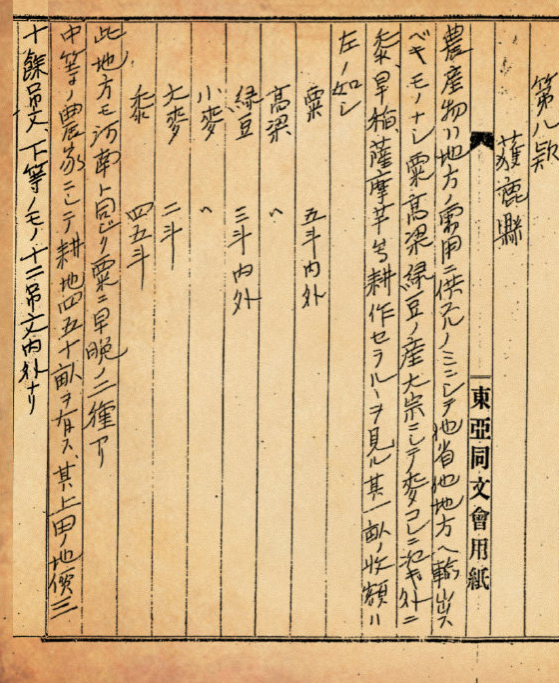 第八款
獲鹿縣
東亞同文會用紙
農産物ハ地方ノ需用ニ供スルノミニシテ他省他地方ヘ輸出ス
ベキモノナシ粟高梁緑豆ノ産大宗ニシテ麥コレニ次キ外ニ
黍、旱稲、薩摩芋等耕作セラルヽヲ見ル其一畝ノ收額ハ
左ノ如シ
粟 五斗内外
高梁 〃
緑豆 三斗内外
小麥 〃
大麥 二斗
黍 四五斗
此地方モ河南ト同ジク粟ニ早晩ノ二種アリ
中等ノ農家ニシテ耕地四五十畝ヲ有ス、其上田ノ地價三
十餘吊文、下等ノモノ十二吊文内外ナリ